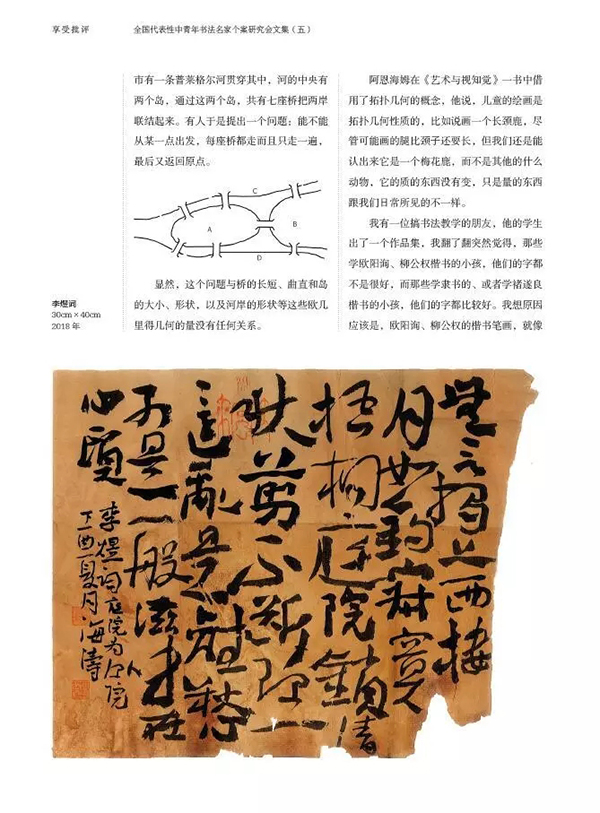 享受批评
全国代表性中青年书法名家个案研究会文集（五）
市有一条普莱格尔河贯穿其中，河的中央有
两个岛，通过这两个岛，共有七座桥把两岸
联结起来。有人于是提出一个问题：能不能
从某一点出发，每座桥都走而且只走一遍，
最后又返回原点。
C
A
B
D
显然，这个问题与桥的长短、曲直和岛
的大小、形状，以及河岸的形状等这些欧几
里得几何的量没有任何关系。
阿恩海姆在《艺术与视知觉》一书中借
用了拓扑几何的概念，他说，儿童的绘画是
拓扑几何性质的，比如说画一个长颈鹿，尽
管可能画的腿比颈子还要长，但我们还是能
认出来它是一个梅花鹿，而不是其他的什么
动物，它的质的东西没有变，只是量的东西
跟我们日常所见的不一样。
我有一位搞书法教学的朋友，他的学生
出了一个作品集，我翻了翻突然觉得，那些
学欧阳询、柳公权楷书的小孩，他们的字都
不是很好，而那些学隶书的、或者学褚遂良
楷书的小孩，他们的字都比较好。我想原因
应该是，欧阳询、柳公权的楷书笔画，就像
李煜词
30cm×40cm
2018 年
無言獨上西楼
月如鉤寂寞
梧桐庭院鎖清
秋剪不断理
還亂是離愁
是一般滋味在
心頭
李煜詞庭院为深院
丁酉夏月海濤